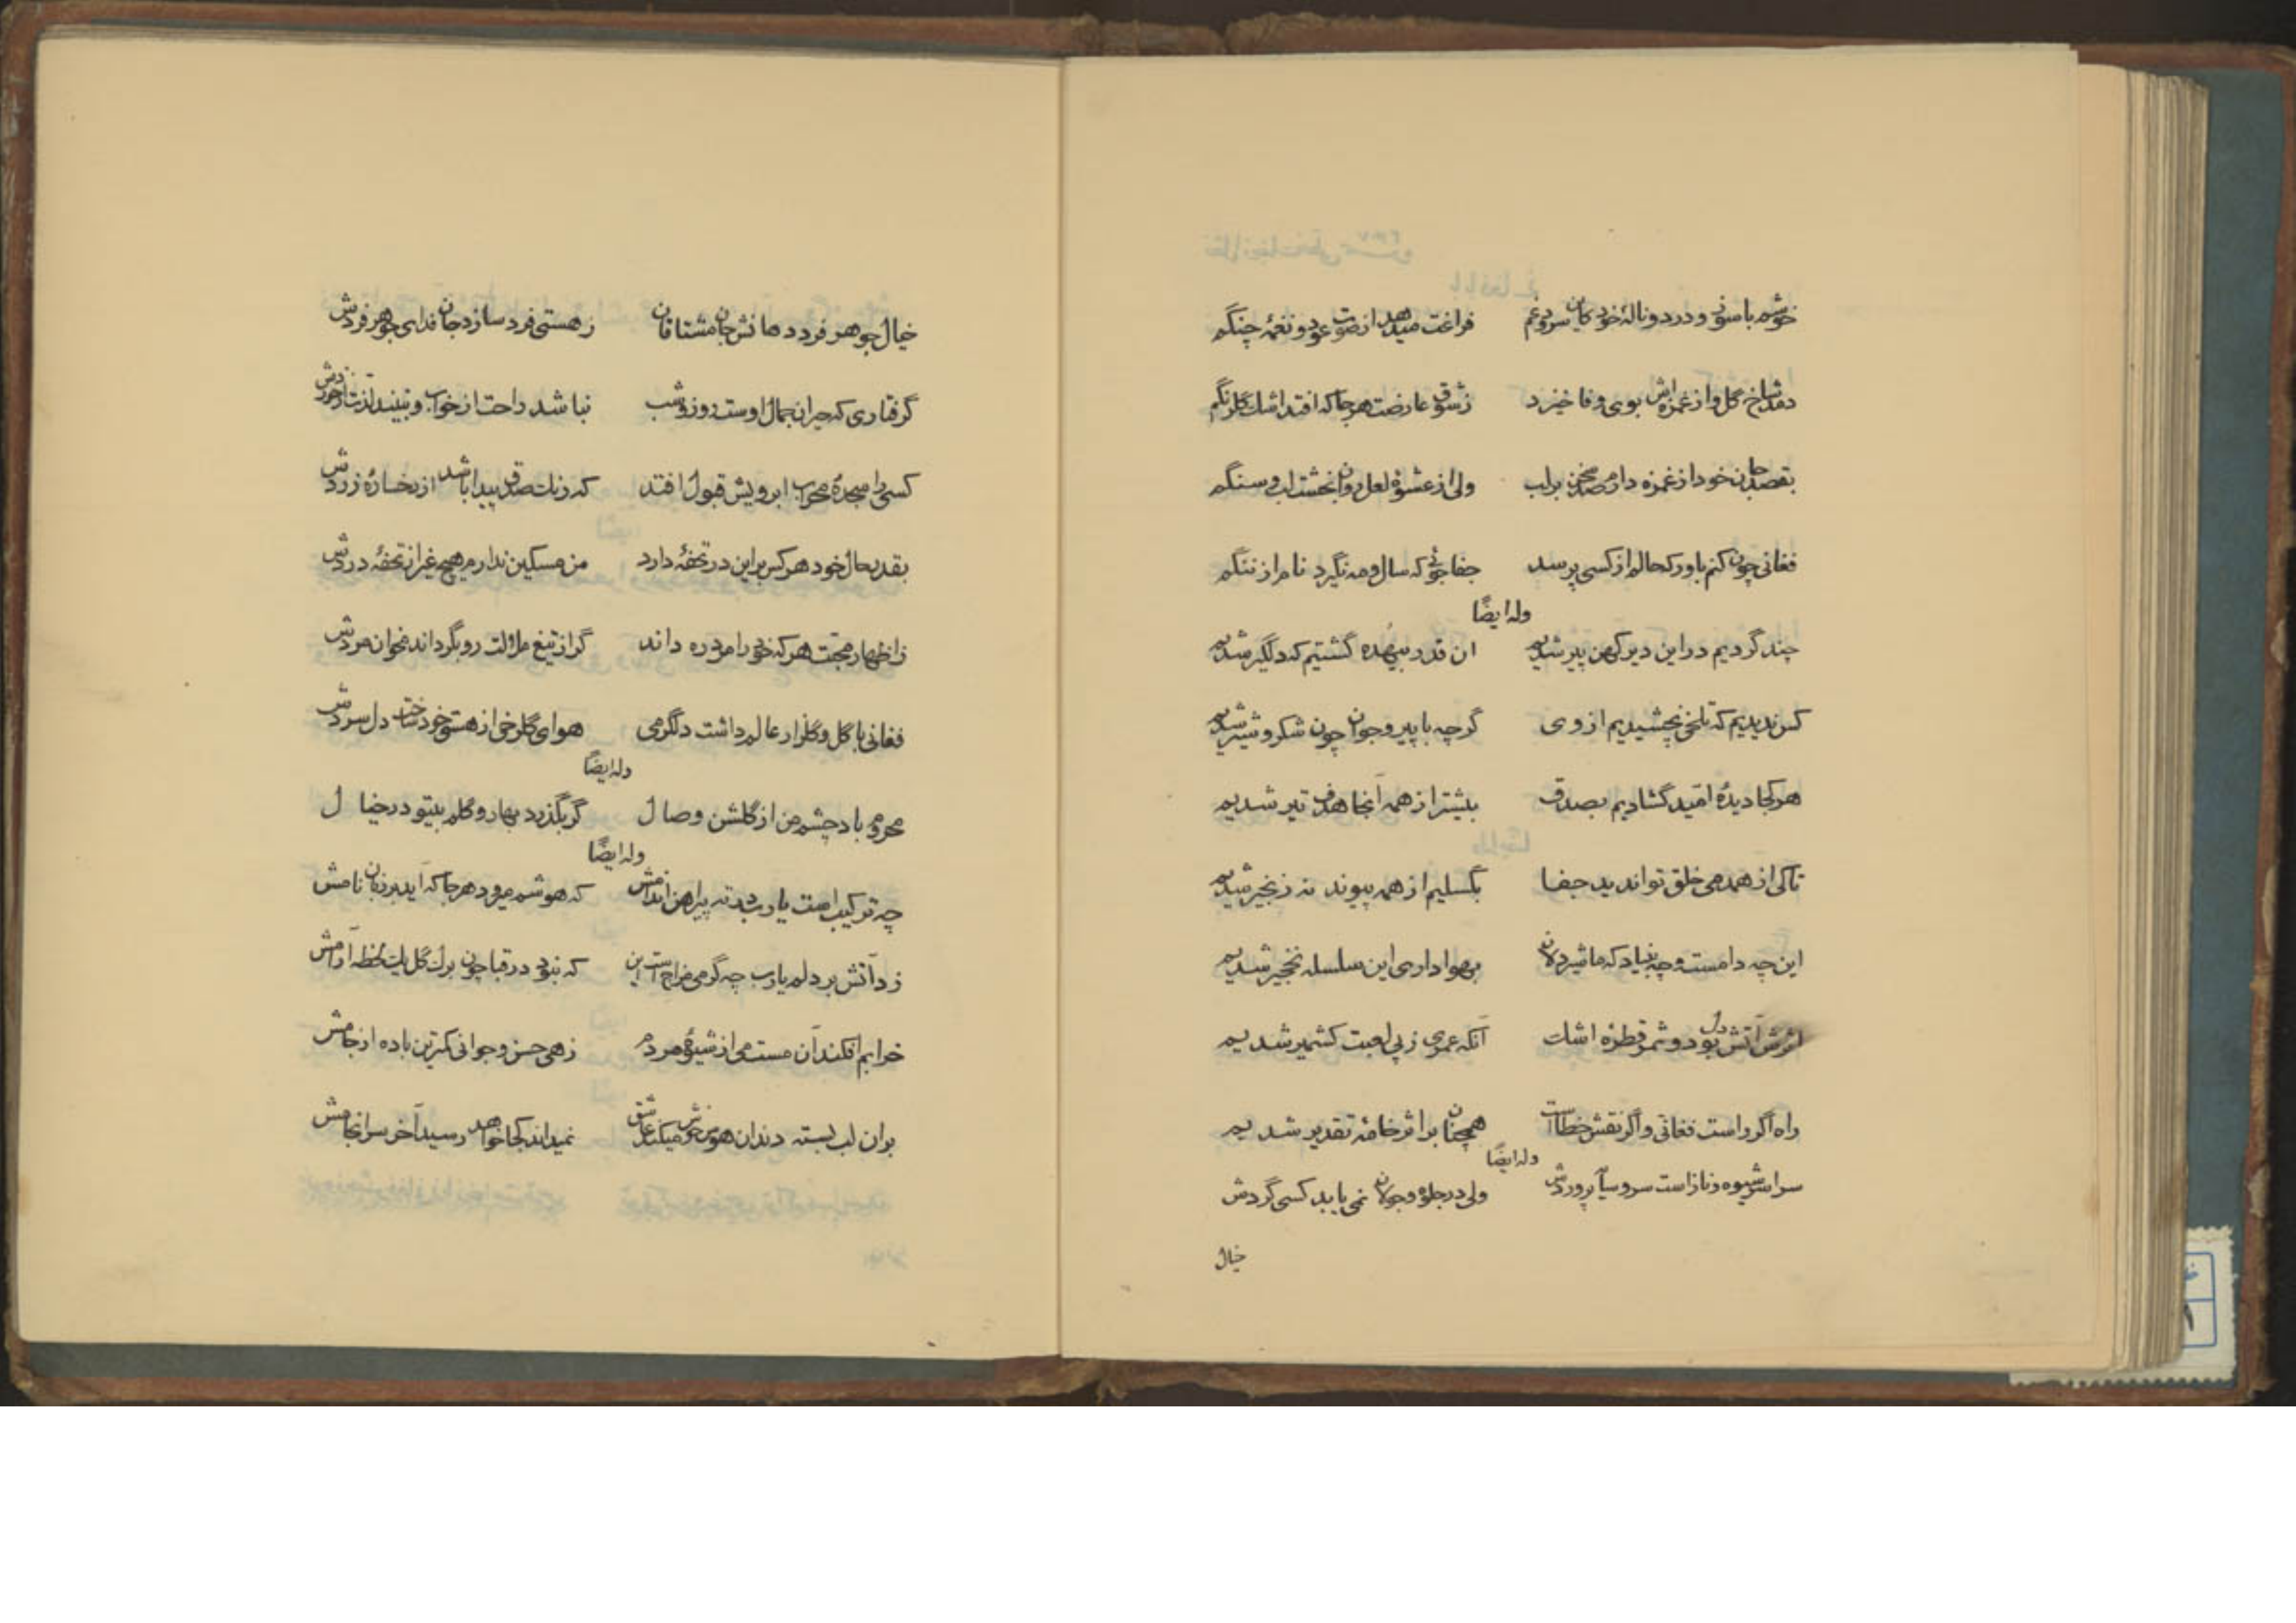 خوشم با سوز و درد و ناله خود کاین سرود غم فراغت میدهد از صوت عود و نغمهٔ چنگم
دمد شاخ گل و از غمزه‌اش بوی وفا خیزد ز شوق عارضت هرجا که افتد اشک گلرنگم
بقصد جان خود از غمزه دارم صد سخن بر لب ولی از عشوهٔ لعل روان بخشت لب و سنگم
فغانی چون کنم باور که حالم از کسی پرسد جفا جوئی که سال و مه نگیرد نام از ننگم
وله ایضاً
چند گردیم در این دیر کهن پیر شدیم ان قدر بیهده گشتیم که دلگیر شدیم
کس ندیدیم که تلخی نچشیدیم از وی گرچه با پیر و جوان چون شکر و شیر شدیم
هرکجا دیدهٔ امّید گشادیم بصدق بیشتر از همه آنجا هدف تیر شدیم
تاکی از همدمی خلق توان دید جفا بگسلیم از همه پیوند نه زنجیر شدیم
این چه دامست و چه بنیاد که ما شیردلان بهواداری این سلسله نخجیر شدیم
اثرش آتش دل بود و ثمر قطرهٔ اشک آنکه عمری ز پی لعبت کشمیر شدیم
راه اگر راست فغانی و اگر نقش خطااست همچنان بر اثر خامهٔ تقدیر شدیم
وله ایضاً
سراسر شیوه و ناز است سرو سایه پروردش ولی در جلوه و جولان نمی یابد کسی گردش
خیال
خیال جوهر فرد دهانش جان مشتاقان ز هستی فرد سازد جان فدای جوهر فردش
گرفتاری که حیران جمال اوست روز و شب نباشد راحت از خواب و نبیند لذت از خوردش
کسی را سجدهٔ محراب ابرویش قبول افتد که رنگ صدق پیدا باشد از رخسارهٔ زردش
بقدر حال خود هرکس براین در تحفهٔ دارد من مسکین ندارم هیچ غیر از تحفهٔ دردش
ز اظهار محبت هرکه خود را مرد ره داند گر از تیغ ملالت رو بگرداند مخوان مردش
فغانی با گل و گلزار عالم داشت دلگرمی هوای گلرخی از هستی خود ساخت دل سردش
وله ایضاً
محروم باد چشم من از گلشن وصال گر بگذرد بهار و گلم بیتو در خیال
وله ایضاً
چه ترکیب است یارب در ته پیراهن اندامش که هوشم میرود هرجا که آید بر زبان نامش
زد آتش بر دلم یارب چه گرمی مزاج است این که نبود در قبا چون برگ گل یک لحظه آرامش
خرابم افکند آن مست می از شیوهٔ مردم زهی حسن و جوانی کمترین باده از جامش
بران لب بسته دندان هوس خوش میکند عاشق نمیداند کجا خواهد رسید آخر سرانجامش